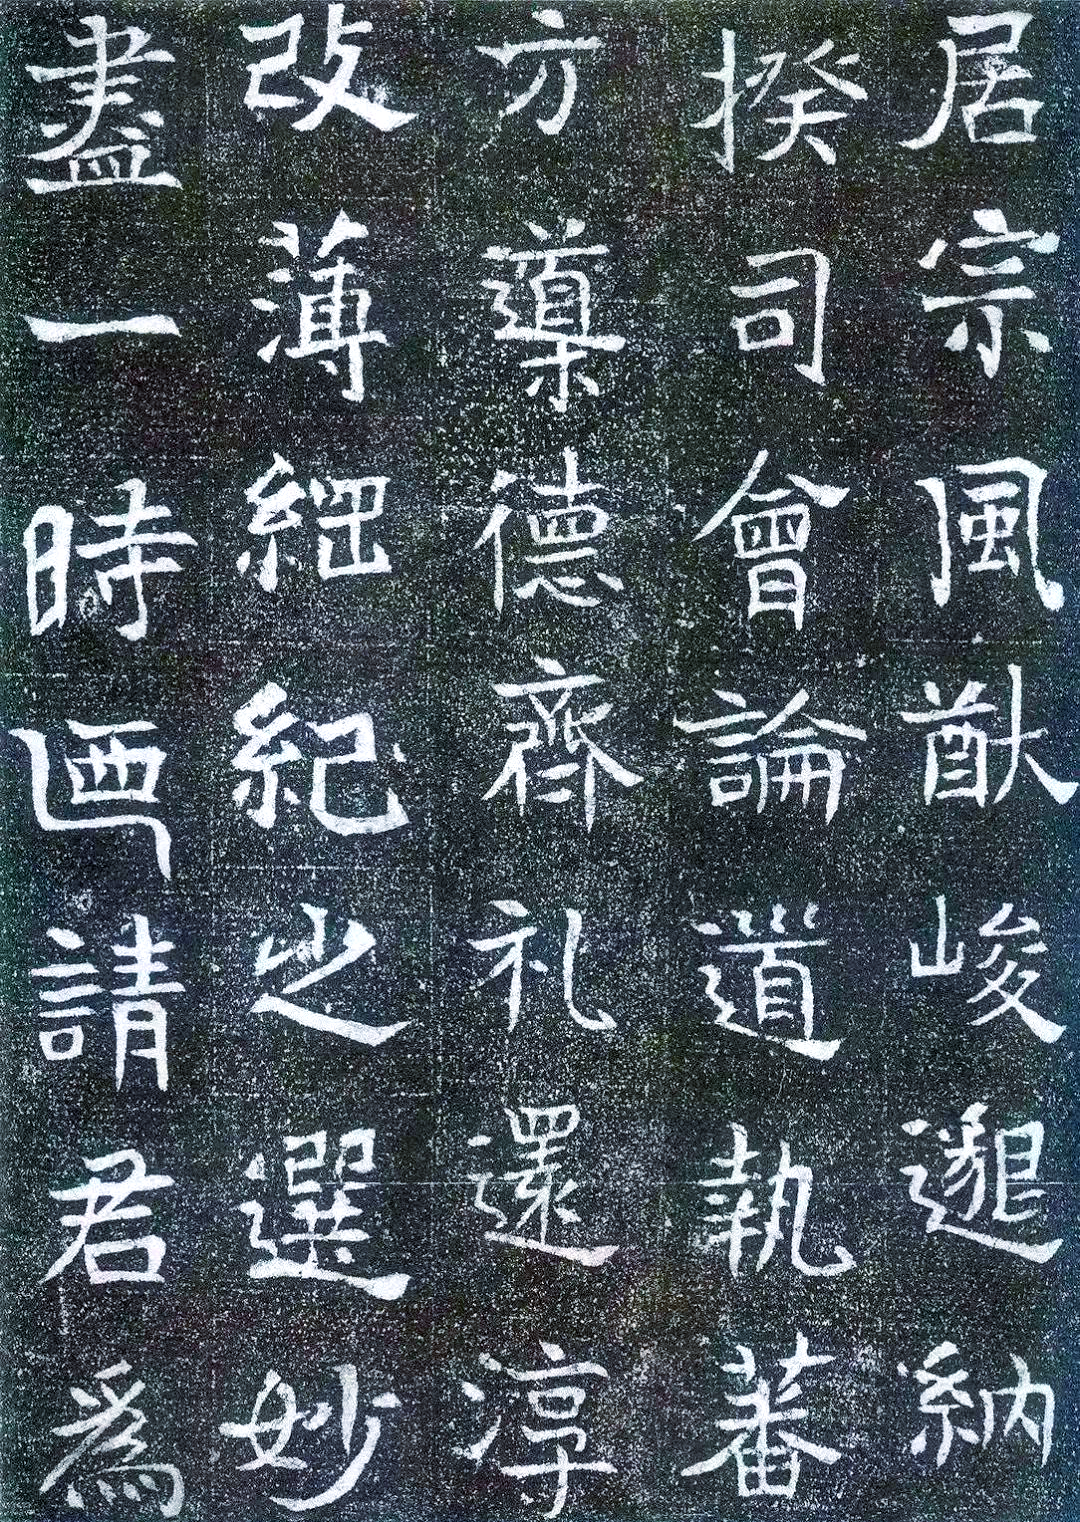 居宗風猷峻邈納
揆司會論道執蕃
方導德齊礼還淳
改薄綑紀之選妙
盡一時迺請君為